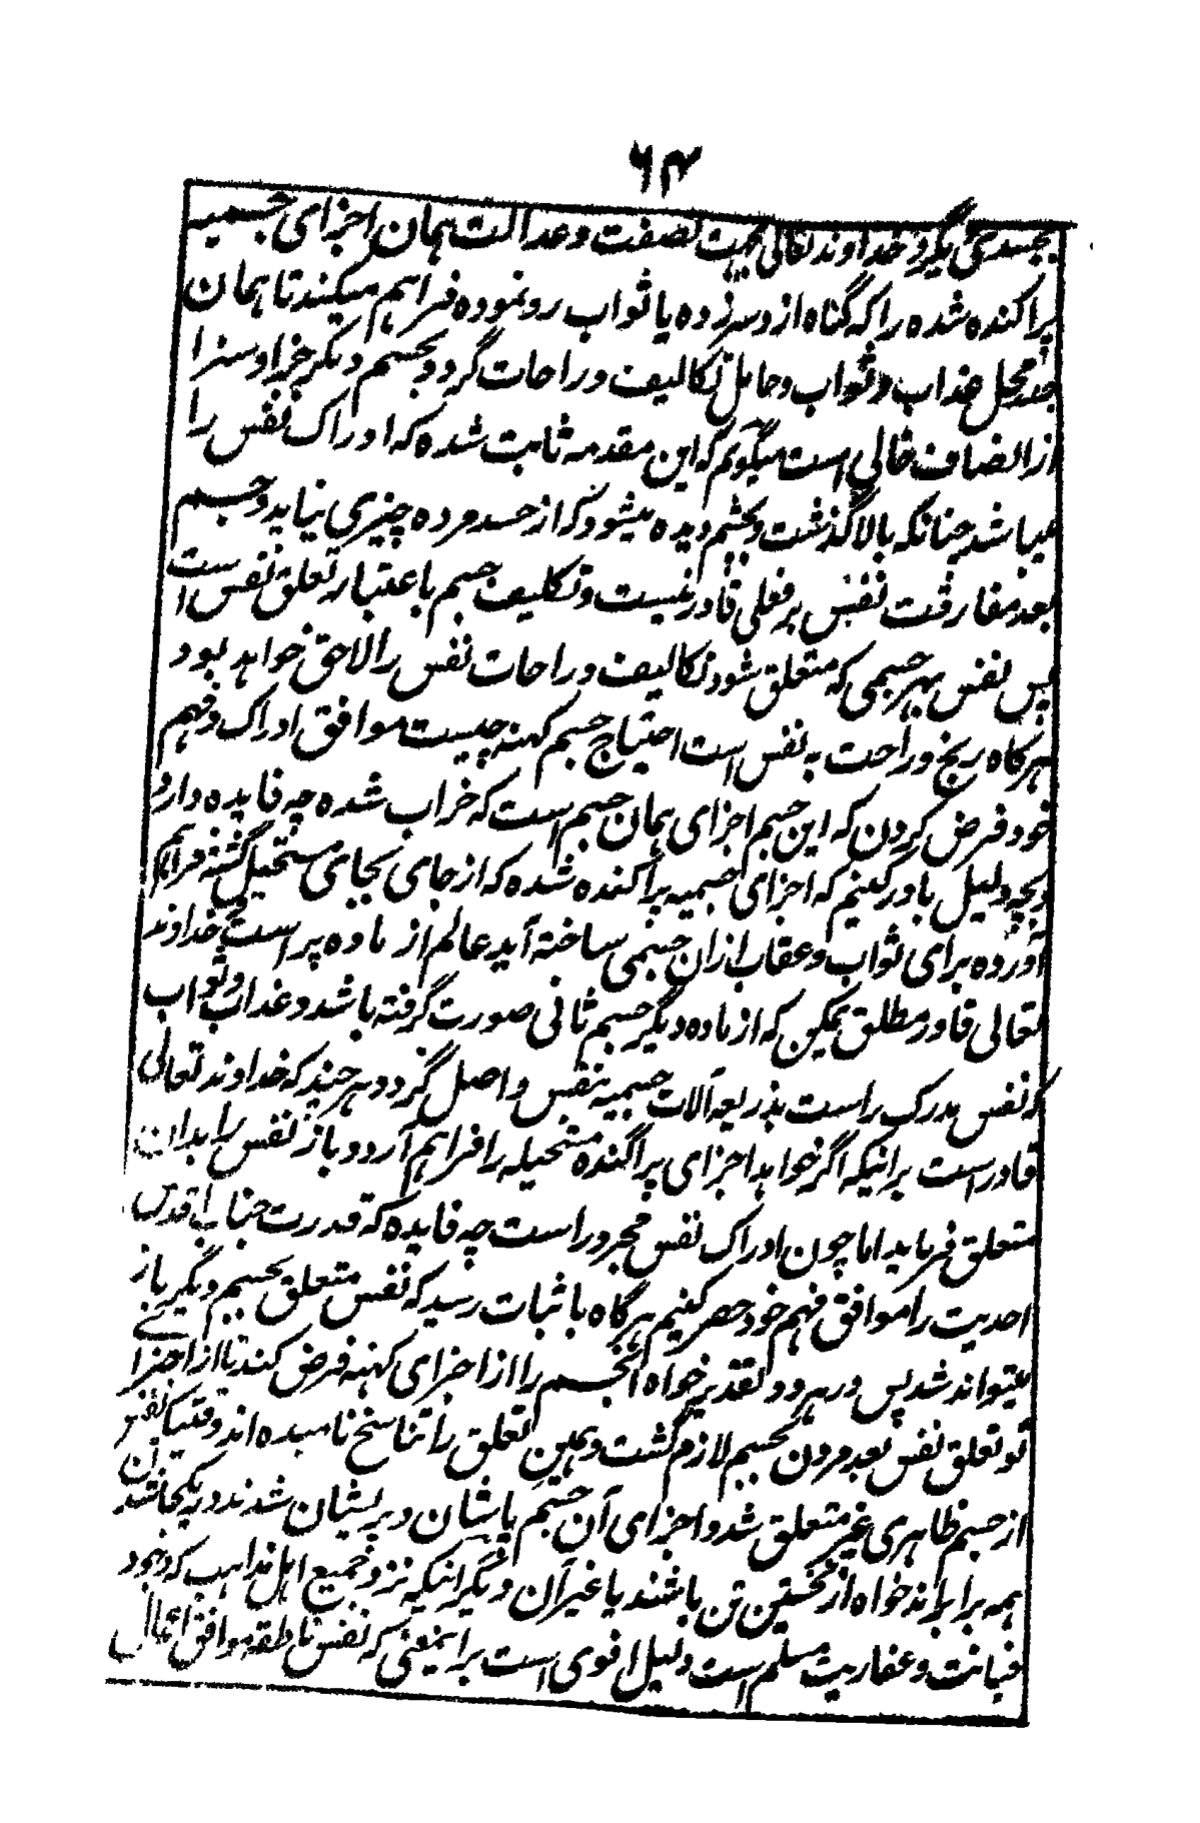 ۶۴
بجسدی دیگر و خداوند تعالی بجهت نصفت و عدالت همان اجزای جسمیه
پراکنده شده را که گناه ازو سرزده یا ثواب رو نموده فراهم میکند تا همان
جسد محل عذاب و ثواب و حامل تکالیف و راحات گردد و بجسم دیگر جزا و سزا
از انصاف خالی است میگویم که این مقدمه ثابت شده که ادراک نفس را
میباشد چنانکه بالا گذشت و بچشم دیده میشود که از جسد مرده چیزی نیاید و جسم
بعد مفارقت نفس بر فعلی قادر نیست و تکلیف جسم باعتبار تعلق نفس است
پس نفس بهر جسمی که متعلق شود تکالیف و راحات نفس را لاحق خواهد بود
هرگاه رنج و راحت به نفس است احتیاج جسم کهنه چیست موافق ادراک و فهم
خود فرض کردن که این جسم اجزای همان جسم است که خراب شده چه فایده دارد
و بچه دلیل باور کنیم که اجزای جسمیه پراکنده شده که از جای بجای مستحیل گشته فراهم
آورده برای ثواب و عقاب ازان جسمی ساخته آید عالم از ماده پر است خداوند
تعالی قادر مطلق ممکن که از ماده دیگر جسم ثانی صورت گرفته باشد و عذاب و ثواب
که نفس مدرک راست بذریعه آلات جسمیه بنفس واصل گردد و هر چند که خداوند تعالی
قادر است برانیکه اگر خواهد اجزای پراگنده مستحیله را فراهم آرد و باز نفس را بدان
متعلق فرماید اما چون ادراک نفس مجرد راست چه فایده که قدرت جناب اقدس
احدیت را موافق فهم خود حصر کنیم هرگاه باثبات رسید که نفس متعلق بجسم دیگر باز
میتواند شد پس در هر دو تقدیر خواه آنجسم را از اجزای کهنه فرض کنند یا از اجزای
نو تعلق نفس بعد مردن بجسم لازم گشت و همین تعلق را تناسخ نامیده اند وقتیکه نفس
از جسم ظاهری غیر متعلق شد و اجزای آن جسم پاشان و پریشان شدند و یکجا شدن
همه برابراند خواه از نخستین تن باشند یا غیر آن و دیگر اینکه نزد جمیع اهل مذاهب که وجود
خباثت و عفاریت مسلم است دلیل اقوی است برایمعنی که نفس ناطقه موافق اعمال